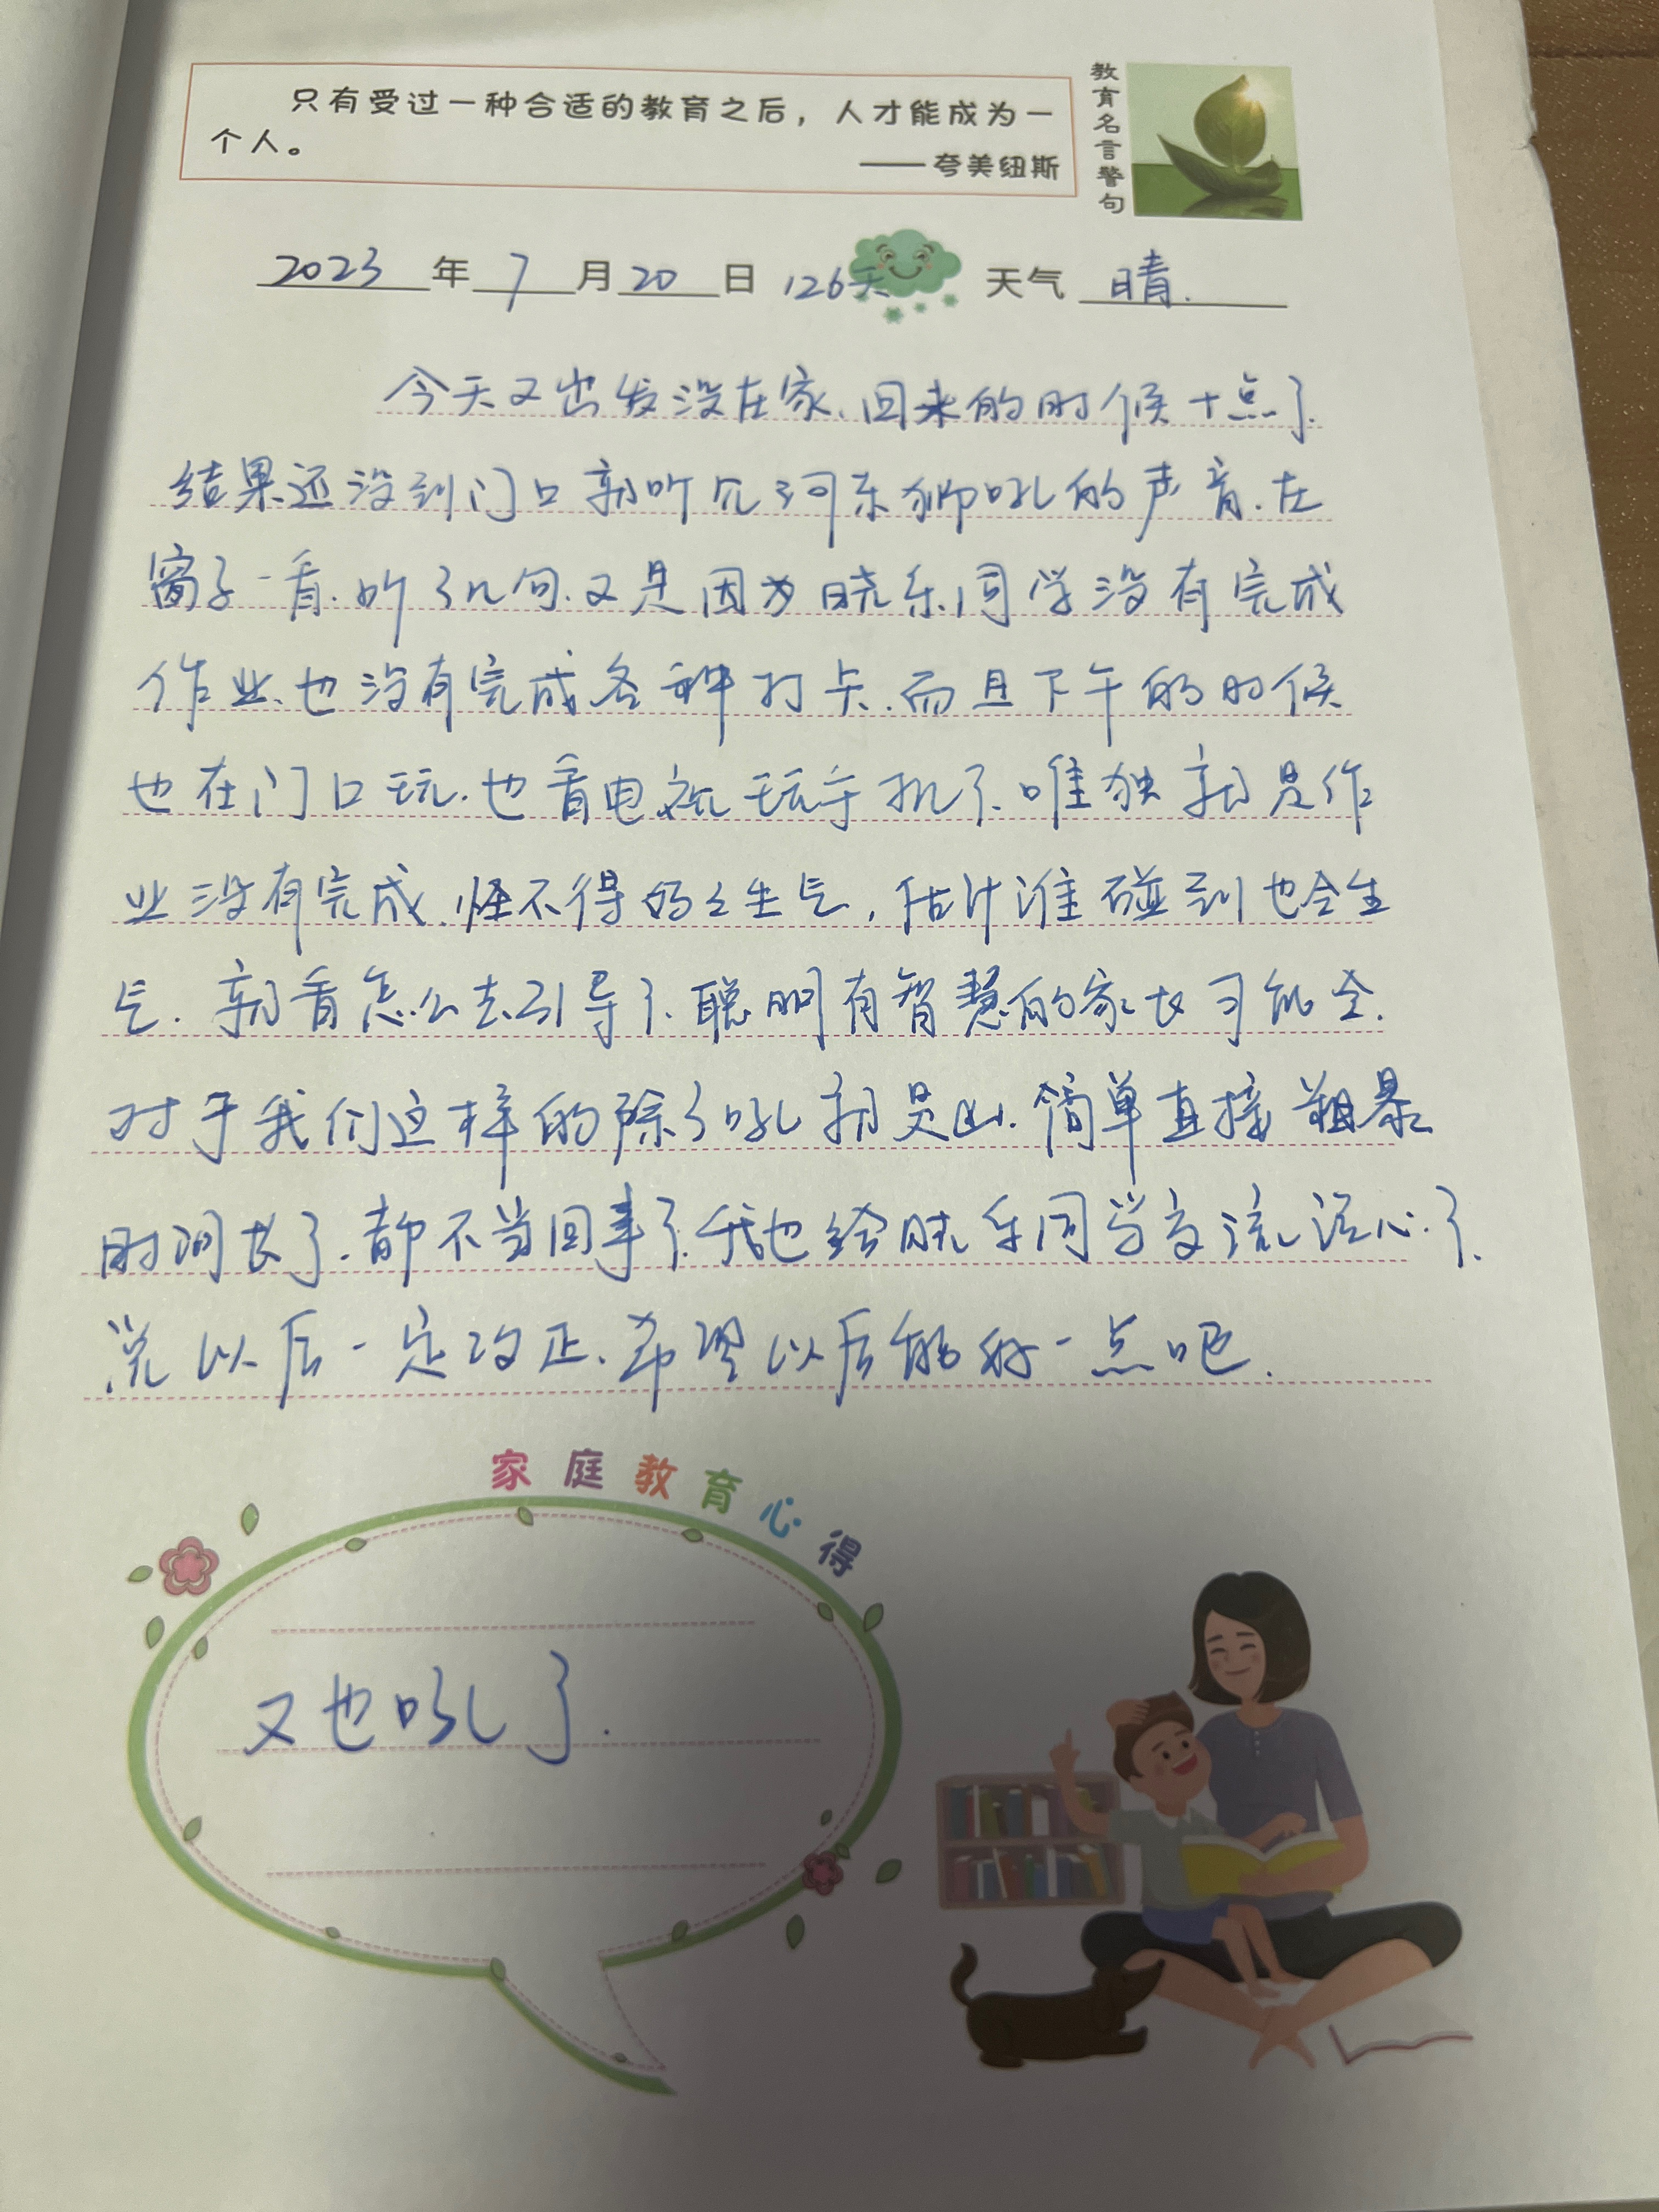 只有受过一种合适的教育之后，人才能成为一
个人。
——夸美纽斯
教育名言警句
2023年7月20日 126天 天气 晴.
今天又出发没在家、回来的时候十点了.
结果还没到门口就听见河东狮吼的声音.在
窗子一看.听了几句.又是因为晓乐同学没有完成
作业、也没有完成各种打卡.而且下午的时候
也在门口玩.也看电视玩手机了.唯独就是作
业没有完成.怪不得妈妈生气，估计谁碰到也会生
气.就看怎么去引导了.聪明有智慧的家长可能会.
对于我们这样的除了吼就是凶.简单直接粗暴
时间长了.都不当回事了.我也给晓乐同学交流谈心了.
说以后一定改正.希望以后能好一点吧.
家庭教育心得
又也吼了.